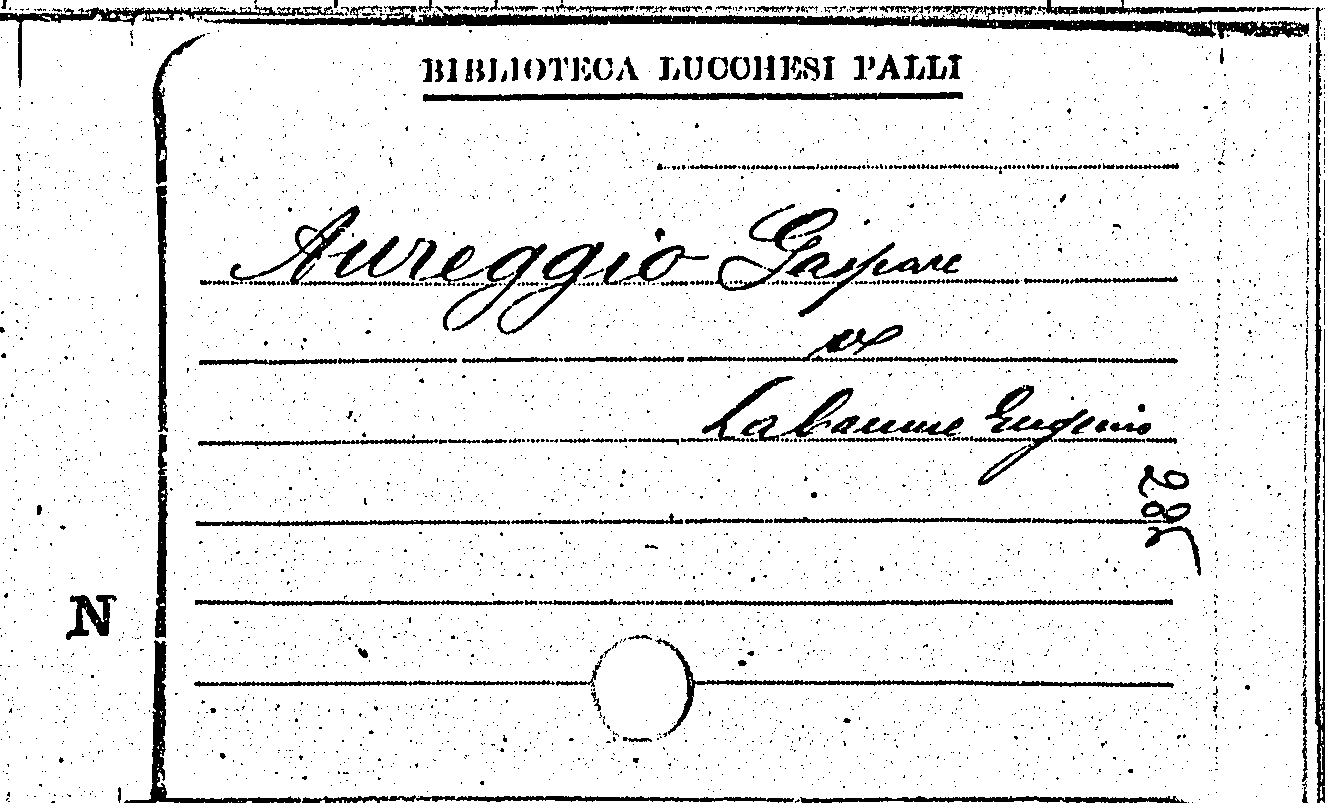 BIBLIOTECA LUCCHESI PALLI
Aureggio Gaspare
Labaume Eugenio
N